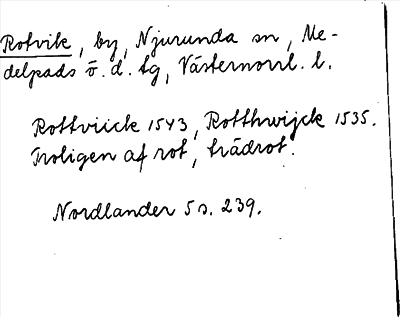 Rotvik, by, Njurunda sn, Me-
delpads ö. d. tg, Västernorrl. l.
Rottviick 1543, Rotthwijck 1535.
Troligen af rot, trädrot.
Nordlander 5 s. 239.